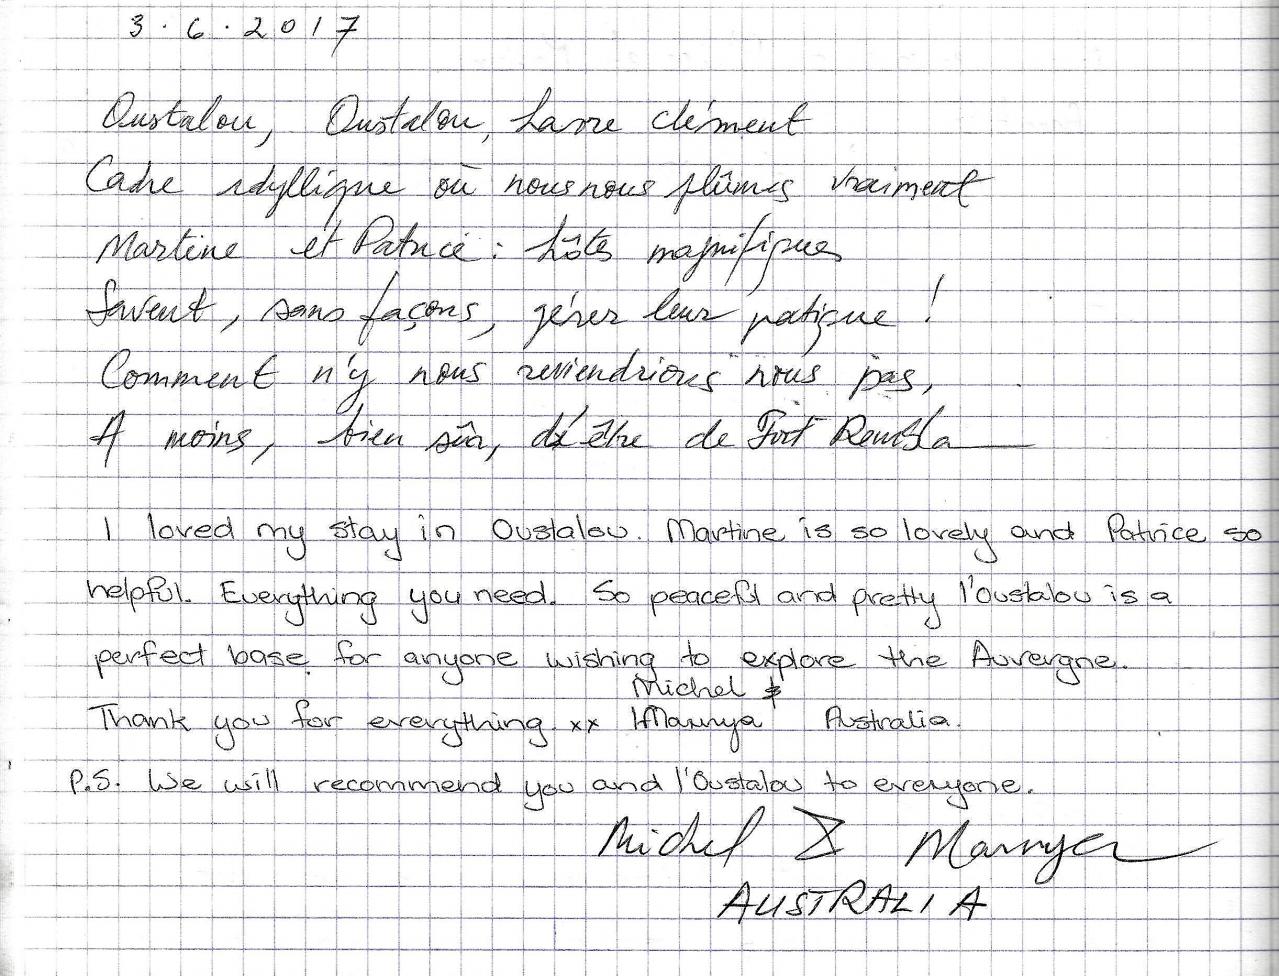 3.6.2017
Oustalou, Oustalou, havre clément
Cadre idyllique où nous nous plûmes vraiment
Martine et Patrice : hôtes magnifiques
Savent, sans façons, gérer leur
Comment n'y nous reviendrions nous pas,
A moins, bien sûr, d'être de Fort
I loved my stay in Oustalou. Martine is so lovely and Patrice so
helpful. Everything you need. So peaceful and pretty l'Oustalou is a
perfect base for anyone wishing to explore the Auvergne.
Michel &
Thank you for everything. xx Mannya Australia.
P.S. We will recommend you and l'Oustalou to everyone.
Michel & Mannya
AUSTRALIA